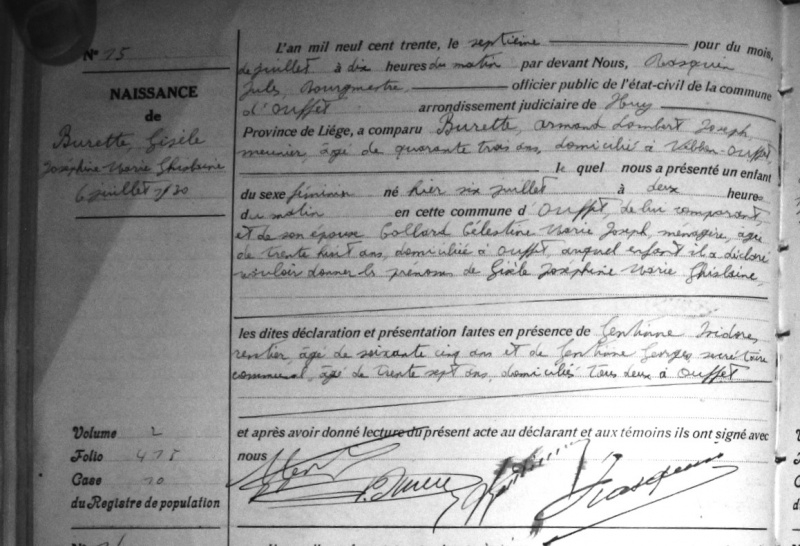 N° 25
NAISSANCE
de
Burette, Gisèle
Joséphine Marie Ghislaine
6 juillet 1930
L'an mil neuf cent trente, le septième jour du mois,
de juillet à dix heures du matin par devant Nous, Rasquin
Jules, Bourgmestre officier public de l'état-civil de la commune
d'Ouffet arrondissement judiciaire de Huy
Province de Liége, a comparu Burette, Armand Lambert Joseph,
meunier, âgé de quarante trois ans, domicilié à Ouffet,
le quel nous a présenté un enfant
du sexe féminin né hier six juillet à deux heures
du matin en cette commune d'Ouffet, de lui comparant,
et de son épouse Collard Célestine Marie Joseph, ménagère, âgée
de trente huit ans, domiciliée à Ouffet, auquel enfant il a déclaré
vouloir donner les prénoms de Gisèle Joséphine Marie Ghislaine,
les dites déclaration et présentation faites en présence de Isidore,
rentier, âgé de soixante cinq ans et de Georges, secrétaire
communal, âgé de trente sept ans, domiciliés tous deux à Ouffet
et après avoir donné lecture du présent acte au déclarant et aux témoins ils ont signé avec
nous
Volume 2
Folio 475
Case 10
du Registre de population
Rasquin